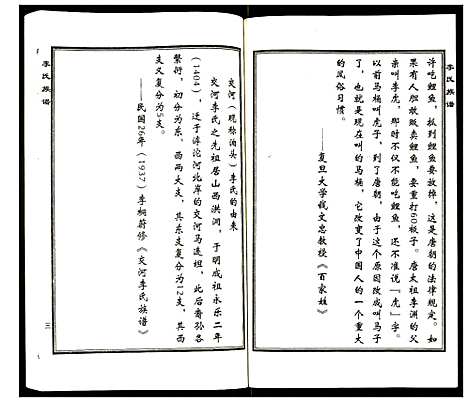 李氏族谱
许吃鲤鱼，抓到鲤鱼要放掉，这是唐朝的法律规定。如
果有人胆敢贩卖鲤鱼，要重打60板子。唐太祖李渊的父
亲叫李虎，那时不仅不能吃鲤鱼，还不准说「虎」字。
以前马桶叫虎子，到了唐朝，由于这个原因改成叫马子
了，也就是现在叫的马桶，它改变了中国人的一个重大
的风俗习惯。
——复旦大学钱文忠教授《百家姓》
李氏族谱
三
交河（现称泊头）李氏的由来
交河李氏之先祖居山西洪洞，于明成祖永乐二年
（1404），迁于滹沱河北岸的交河马连坦，此后裔孙各
繁衍，初分为东、西两大支，其东支复分为12支，其西
支又复分为5支。
——民国26年（1937）李桐蔚修《交河李氏族谱》